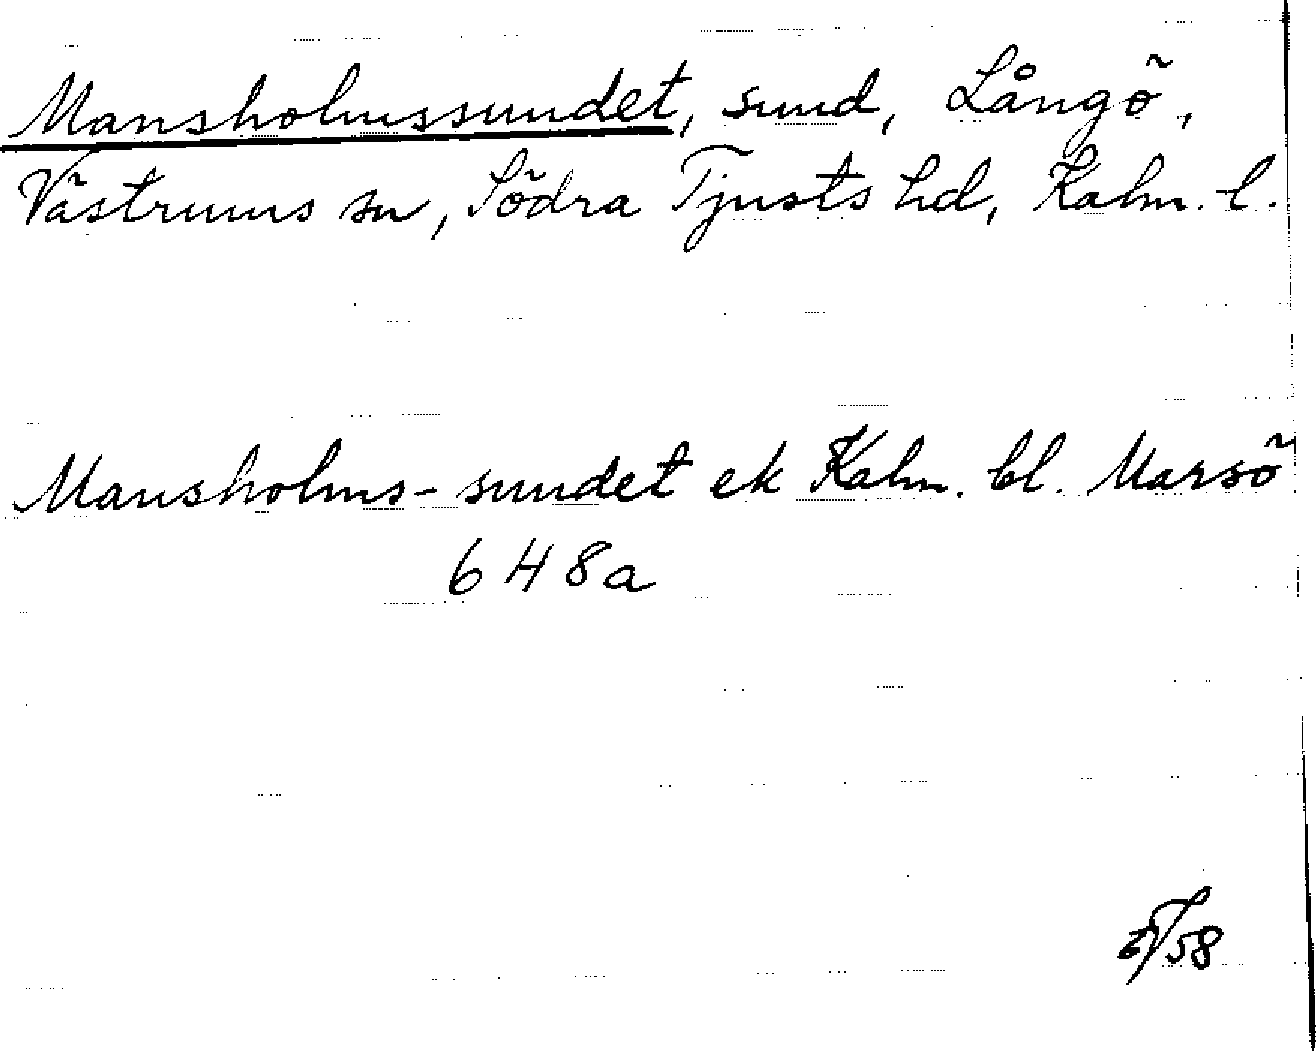 Mansholmssundet, sund, Långö,
Västrums sn, Södra Tjusts hd, Kalm. l.
Mansholms-sundet ek Kalm. bl. Marsö
6 H 8a
58